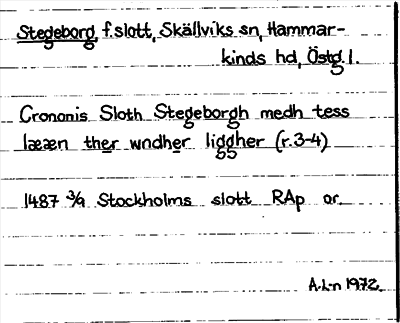 Stegeborg, f.slott, Skällviks sn, Hammar-
kinds hd, Östg. l.
Crononis Sloth Stegeborgh medh tess
lææn ther wndher liggher (r.3-4)
1487 3/9 Stockholms slott RAp or.
A.L-n 1972.